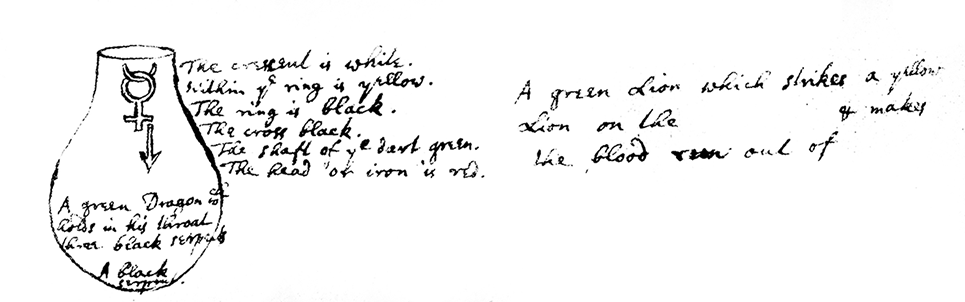 The crescent is white.
within yᵉ ring is yellow.
The ring is black.
The cross black.
The shaft of yᵉ dart green.
The head or iron is red.
A green Dragon wᶜʰ
holds in his throat
three black serpents
A black
serpent.
A green Lion which strikes a yellow
Lion on the & makes
the blood run out of